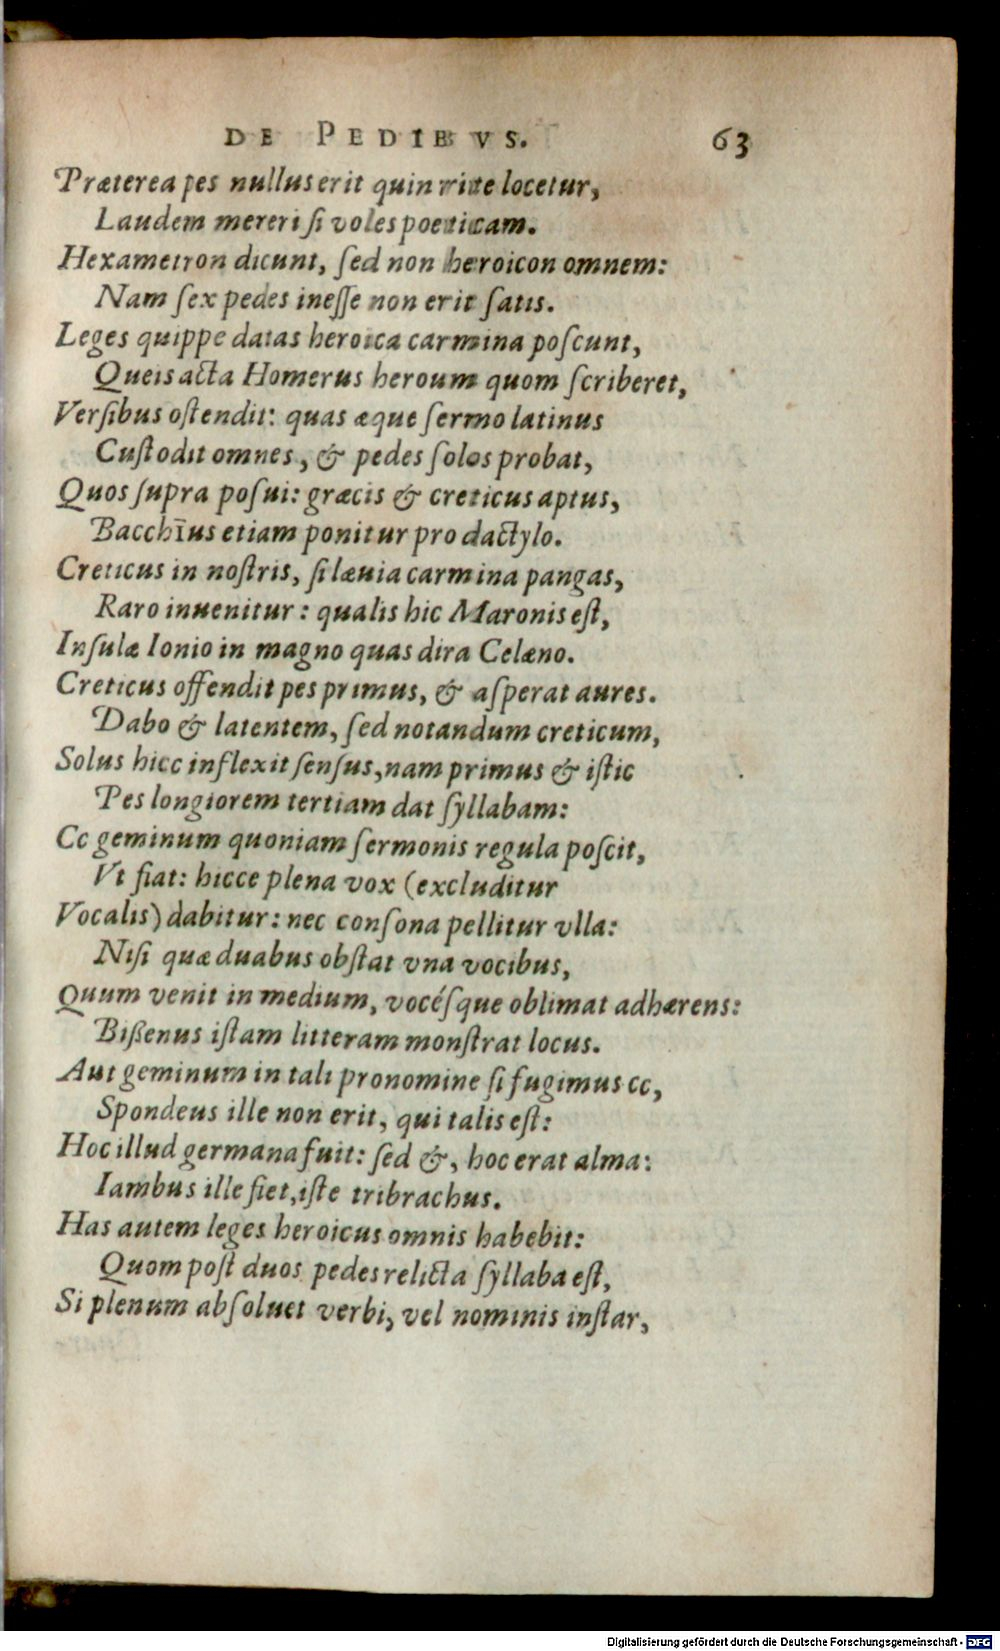 DE PEDIBVS. 63
Præterea pes nullus erit quin rite locetur,
Laudem mereri ſi voles poeticam.
Hexametron dicunt, ſed non heroicon omnem:
Nam ſex pedes ineſſe non erit ſatis.
Leges quippe datas heroica carmina poſcunt,
Queis acta Homerus heroum quom ſcriberet,
Verſibus oſtendit: quas æque ſermo latinus
Cuſtodit omnes, & pedes ſolos probat,
Quos ſupra poſui: græcis & creticus aptus,
Bacchīus etiam ponitur pro dactylo.
Creticus in noſtris, ſi læuia carmina pangas,
Raro inuenitur: qualis hic Maronis eſt,
Inſulæ Ionio in magno quas dira Celæno.
Creticus offendit pes primus, & aſperat aures.
Dabo & latentem, ſed notandum creticum,
Solus hicc inflexit ſenſus, nam primus & iſtic
Pes longiorem tertiam dat ſyllabam:
Cc geminum quoniam ſermonis regula poſcit,
Vt fiat: hicce plena vox (excluditur
Vocalis) dabitur: nec conſona pellitur vlla:
Niſi quæ duabus obſtat vna vocibus,
Quum venit in medium, vocéſque oblimat adhærens:
Bißenus iſtam litteram monſtrat locus.
Aut geminum in tali pronomine ſi fugimus cc,
Spondeus ille non erit, qui talis eſt:
Hoc illud germana fuit: ſed &, hoc erat alma:
Iambus ille fiet, iſte tribrachus.
Has autem leges heroicus omnis habebit:
Quom poſt duos pedes relicta ſyllaba eſt,
Si plenum abſoluet verbi, vel nominis inſtar,
Digitalisierung gefördert durch die Deutsche Forschungsgemeinschaft - DFG